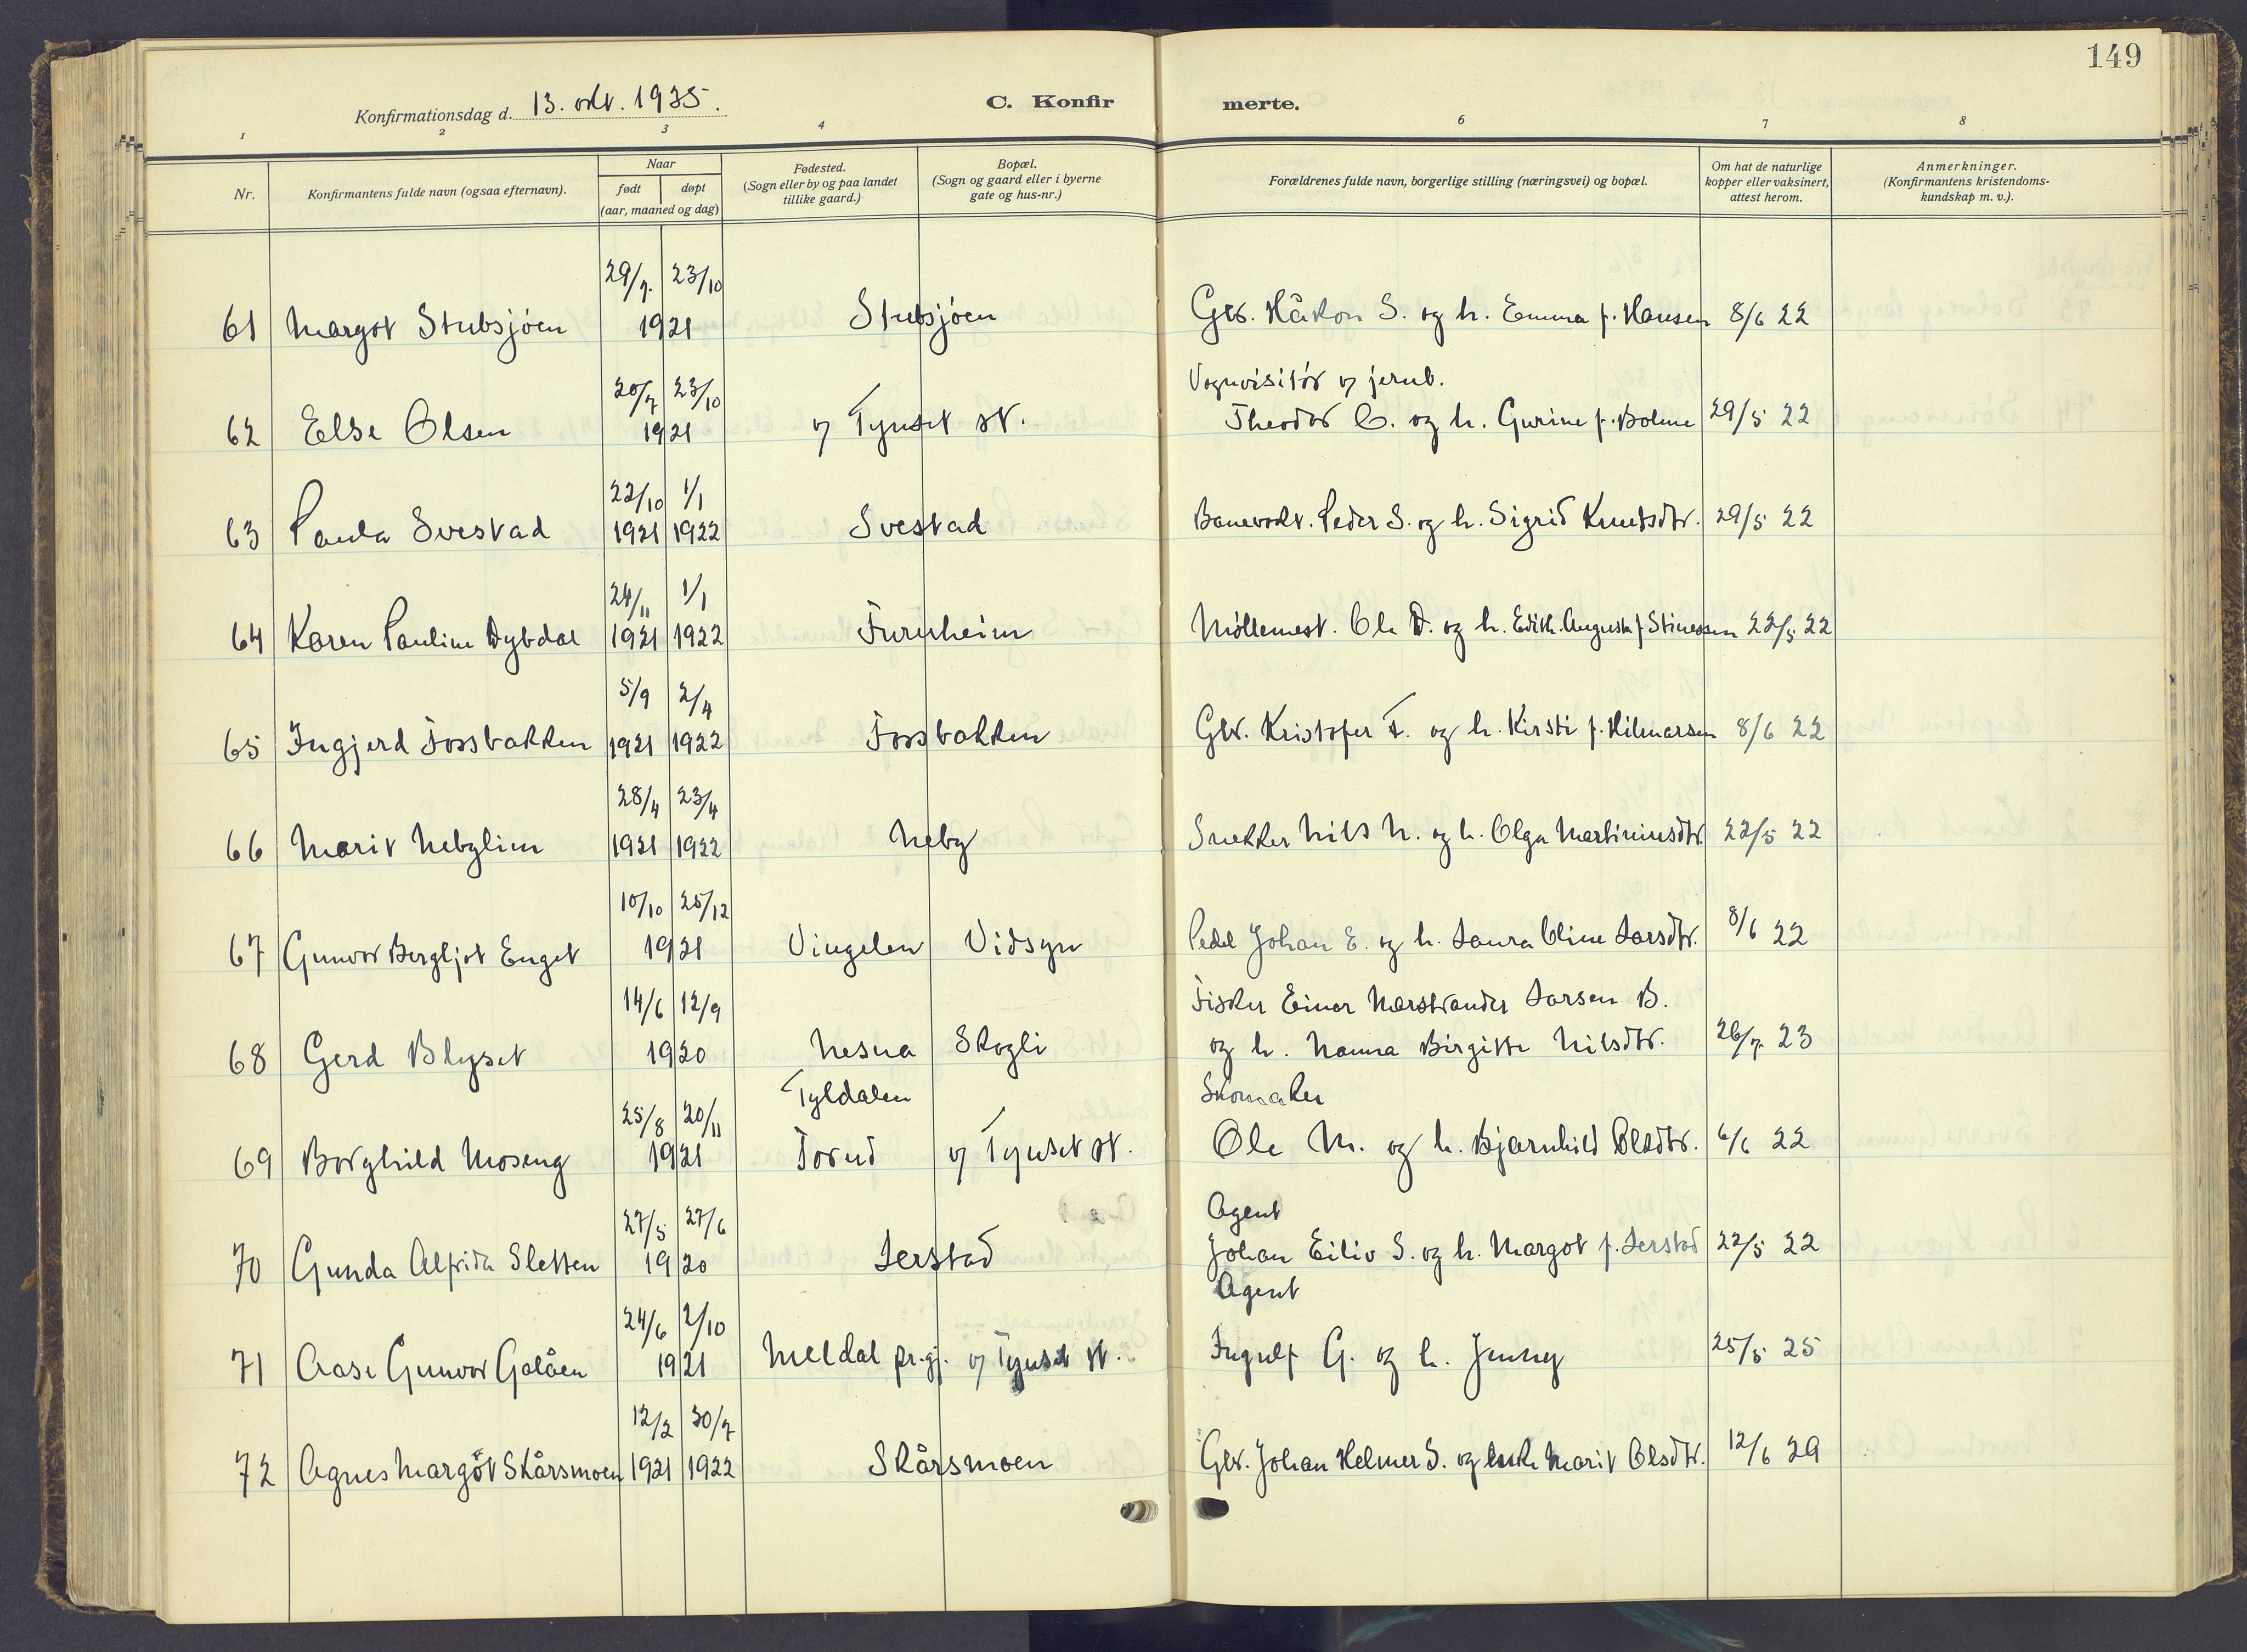 149
Konfirmationsdag d. 13. okt. 1935.
C. Konfirmerte.
1 2 3 4 6 7 8
Nr.
Konfirmantens fulde navn (ogsaa efternavn).
Naar
født døpt
(aar, maaned og dag)
Fødested.
(Sogn eller by og paa landet
tillike gaard.)
Bopæl.
(Sogn og gaard eller i byerne
gate og hus-nr.)
Forældrenes fulde navn, borgerlige stilling (næringsvei) og bopæl.
Om hat de naturlige
kopper eller vaksinert,
attest herom.
Anmerkninger.
(Konfirmantens kristendoms-
kundskap m. v.).
29/7. 23/10
61 Margot Stubsjöen 1921 Stubsjöen Gbr. Håkon S. og h. Emma f. Hansen 8/6 22
20/7 23/10 Vognvisitör v/ jernb.
62 Else Olsen 1921 v/ Tynset st. Theodor O. og h. Gurine f. Bolme 29/5 22
22/10 1/1
63 Paula Svestad 1921 1922 Svestad Banevokt. Peder S. og h. Sigrid Knutsdtr. 29/5 22
24/11 1/1
64 Karen Pauline Dybdal 1921 1922 Furuheim Möllemest. Ole D. og h. Edith. Augusta f. Stinessen 22/5 22
5/9 2/4
65 Ingjerd Fossbakken 1921 1922 Fossbakken Gbr. Kristofer F. og h. Kirsti f. Hilmarsen 8/6 22
28/4 23/4
66 Marit Nebylien 1921 1922 Neby Snekker Nils N. og h. Olga Martiniusdtr. 22/5 22
10/10 25/12
67 Gunvor Bergljot Enget 1921 Vingelen Vidsyn Pedel Johan E. og h. Laura Oline Larsdtr. 8/6 22
14/6 12/9 Fisker Einar Marstrander Larsen B.
68 Gerd Blyset 1920 Nesna Skogli og h. Hanna Birgitte Nilsdtr. 26/7. 23
25/8 20/11 Tyldalen Skomaker
69 Borghild Moseng 1921 Torud v/ Tynset st. Ole M. og h. Bjarnhild Olsdtr. 6/6 22
27/5 27/6 Agent
70 Gunda Alfrida Sletten 1920 Jerstad Johan Eiliv S. og h. Margot f. Jerstad 22/5 22
24/6 2/10 Agent
71 Aase Gunvor Galåen 1921 Meldal pr.gj. v/ Tynset st. Ingulf G. og h. Jenny 25/5 25
12/2 30/7
72 Agnes Margot Skårsmoen 1921 1922 Skårsmoen Gbr. Johan Helmer S. og Marit Olsdtr. 12/6 29